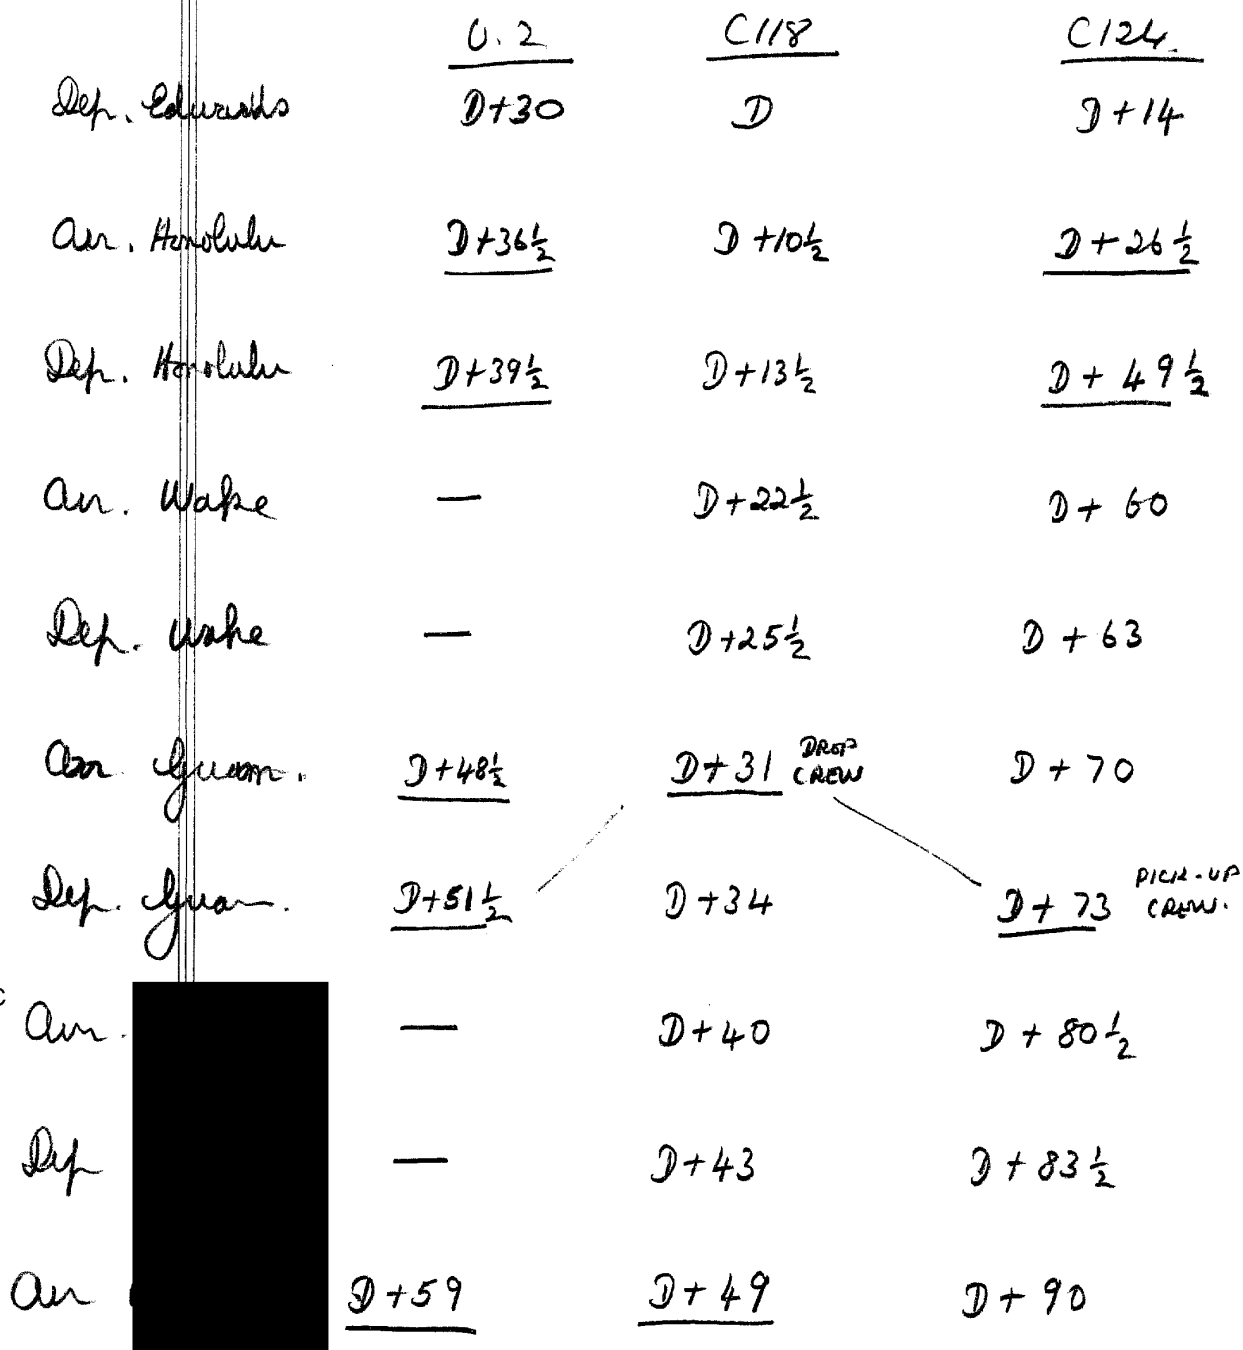 U.2 C118 C124.
Dep. Edwards D+30 D D+14
Arr. Honolulu D+36½ D+10½ D+26½
Dep. Honolulu D+39½ D+13½ D+49½
Arr. Wake — D+22½ D+60
Dep. Wake — D+25½ D+63
Arr Guam. D+48½ D+31 DROP CREW D+70
Dep. Guam. D+51½ D+34 D+73 PICK-UP CREW.
Arr. — D+40 D+80½
Dep — D+43 D+83½
Arr D+59 D+49 D+90